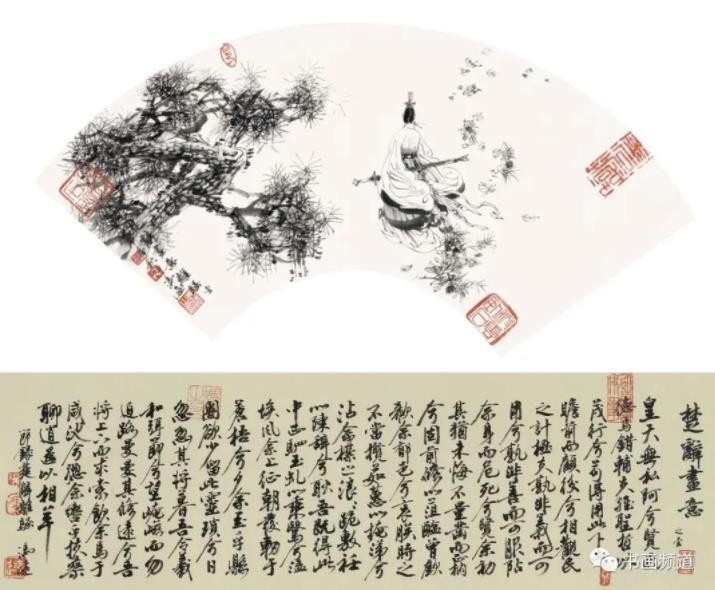 楚辭畫意
皇天無私阿兮覽民
德焉錯輔夫維聖哲以
茂行兮苟得用此下土
瞻前而顧後兮相觀民
之計極夫孰非義而可
用兮孰非善而可服阽
余身而危死兮覽余初
其猶未悔不量鑿而正枘
兮固前脩以菹醢曾歔
欷余鬱邑兮哀朕時之
不當攬茹蕙以掩涕兮
沾余襟之浪浪跪敷衽
以陳辭兮耿吾既得此
中正駟玉虬以乘鷖兮溘
埃風余上征朝發軔于
蒼梧兮夕余至乎縣
圃欲少留此靈瑣兮日
忽忽其將暮吾令羲
和弭節兮望崦嵫而勿
迫路曼曼其脩遠兮吾
將上下而求索飲余馬于
咸池兮總余轡乎扶桑
聊逍遙以相羊
節錄楚辭離騷
书画频道